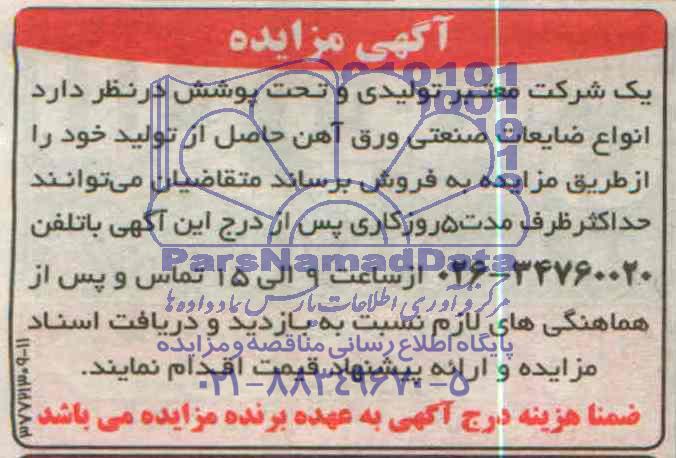 آگهی مزایده
یک شرکت معتبر تولیدی و تحت پوشش درنظر دارد
انواع ضایعات صنعتی ورق آهن حاصل از تولید خود را
ازطریق مزایده به فروش برساند متقاضیان می‌توانند
حداکثر ظرف مدت۵روزکاری پس از درج این آگهی باتلفن
۰۲۶-۳۴۷۶۰۰۲۰ ازساعت ۹ الی ۱۵ تماس و پس از
هماهنگی های لازم نسبت به بازدید و دریافت اسناد
مزایده و ارائه پیشنهاد قیمت اقدام نمایند.
ضمنا هزینه درج آگهی به عهده برنده مزایده می باشد
۳۷۷۲۱۳۰۹-۱۱
ParsNamadData
مرکز فرآوری اطلاعات پارس نماد داده ها
پایگاه اطلاع رسانی مناقصه و مزایده
۰۲۱-۸۸۳۴۹۶۷۰-۵